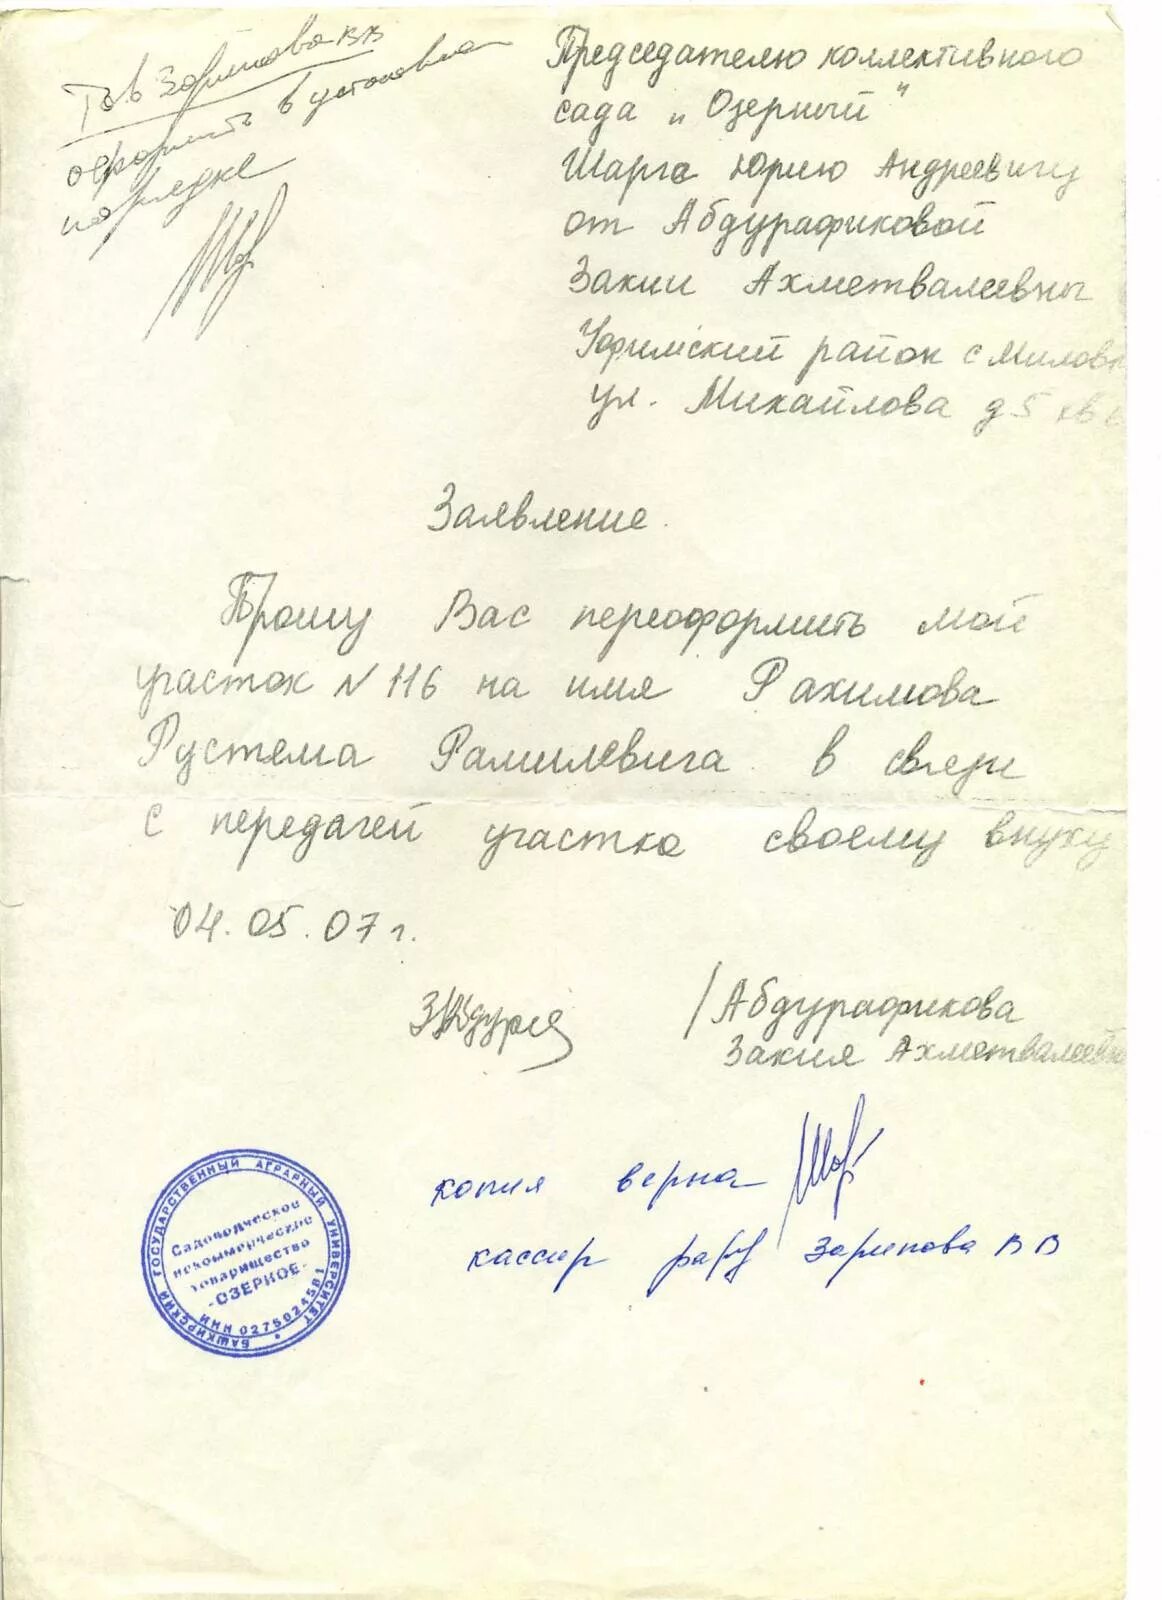 Тов Зарипова ВВ
оформить в установлен
порядке
Председателю коллективного
сада „Озерный"
Шарга Юрию Андреевичу
от Абдурафиковой
Закии Ахметвалеевны
Уфимский район с Миловк
ул. Михайлова д 5 кв 6
Заявление.
Прошу Вас переоформить мой
участок № 116 на имя Рахимова
Рустема Рамилевича в связи
с передачей участка своему внуку
04.05.07 г.
/Абдурафикова
Закия Ахметвалеевн
копия верна
кассир Зарипова ВВ
БАШКИРСКИЙ ГОСУДАРСТВЕННЫЙ АГРАРНЫЙ УНИВЕРСИТЕТ
Садоводческое
некоммерческое
товарищество
-ОЗЕРНОЕ-
ИНН 0275024581